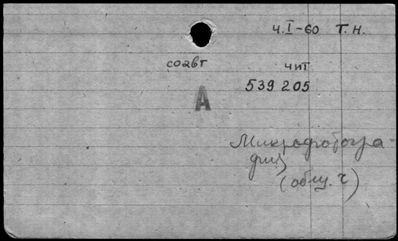 ч.I-60 Т.Н.
соавт чит
539 205
А
Микрофотогра-
фии